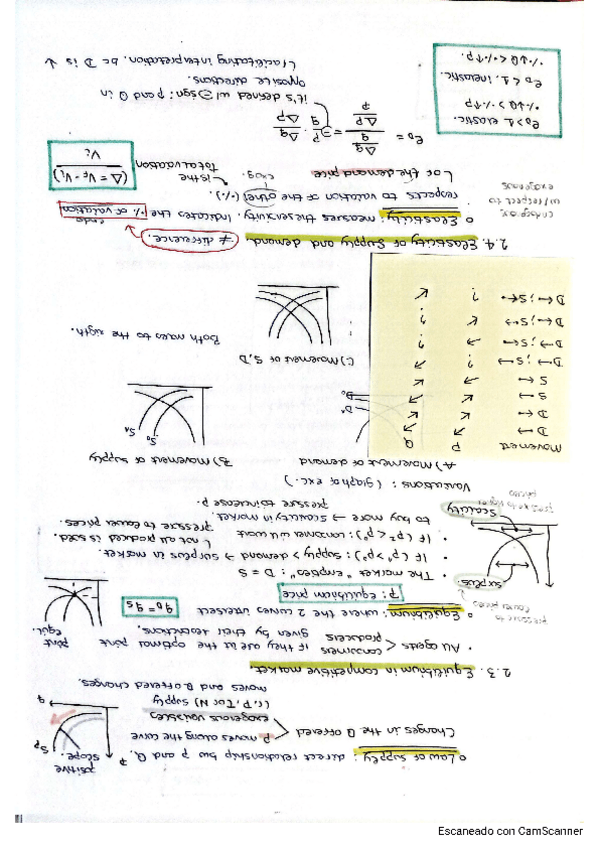 o Law of supply: direct relationship bw p and Q.
positive
slope.
Sp
P
q
Changes in the Q offered
P moves along the curve
exogenous variables
(r, P, T or N) supply
moves and Q offered changes.
2.3. Equilibrium in competitive market.
• All agents < consumers
producers
if they are at the optimal point
given by their restrictions.
point
equil.
o Equilibrium: where the 2 curves intersect
qD = qS
p: equilibrium price
• The market "empties": D = S
• If (p">p*): supply > demand → surplus in market.
not all produced is sold.
pressure to lower prices.
• If (p'<p*): consumer will want
to buy more → scarcity in market.
pressure to increase p.
pressure to
lower prices
surplus.
scarcity
Variations: (graph or exc.)
A) Movement of demand
B) Movement of supply
D'
D0
S0
SA
C) Movement of S, D
Both moves to the rigth.
Movement P Q
D → ↗ ↗
D ← ↙ ↙
S → ↙ ↗
S ← ↗ ↙
2.4. Elasticity of supply and demand.
≠ difference.
o Elasticity: measures the sensitivity. Indicates the % of variation
respects to variation of the other (%).
endo
exog.
↳ or the demand price
↳ is the
Total variation
(Δ = VF - Vi)
Vi
endogen.
w/ respect to
exogenous
eD = Δq/q / Δp/p = ⊖ p/q · Δq/Δp
it's defined w/ ⊖ sign: p and Q in
opposite directions.
↳ facilitating interpretation, bc D is ↓
eD > 1 elastic.
% ↓Q > % ↑p
eD < 1. inelastic.
% ↓Q < % ↑p.
Escaneado con CamScanner